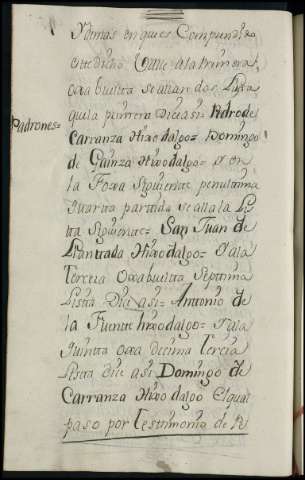 y demas en que es Compundi do
enttedicho Que ala Primera
oxa buelta se allan dos Lista
que la primera Dice asi= Pedro de
Padrones= Carranza Hixodalgo= Domingo
de Gainza Hixodalgo= y en
la Foxa Siguiente penultima
quarta partida se alla la Lis
ta siguiente= San Juan de
Llantada Hixodalgo= y ala
Tercia oxa buelta Septima
Lista Dice asi= Antonio de
la Fuente hixodalgo= y ala
quinta oxa decima Tercia
Lista dice asi Domingo de
Carranza Hixodalgo el qual
paso por Testimonio de